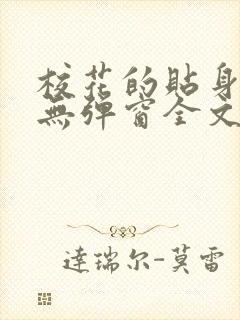 校花的貼身
無彈窗全文
達瑞尔-莫雷